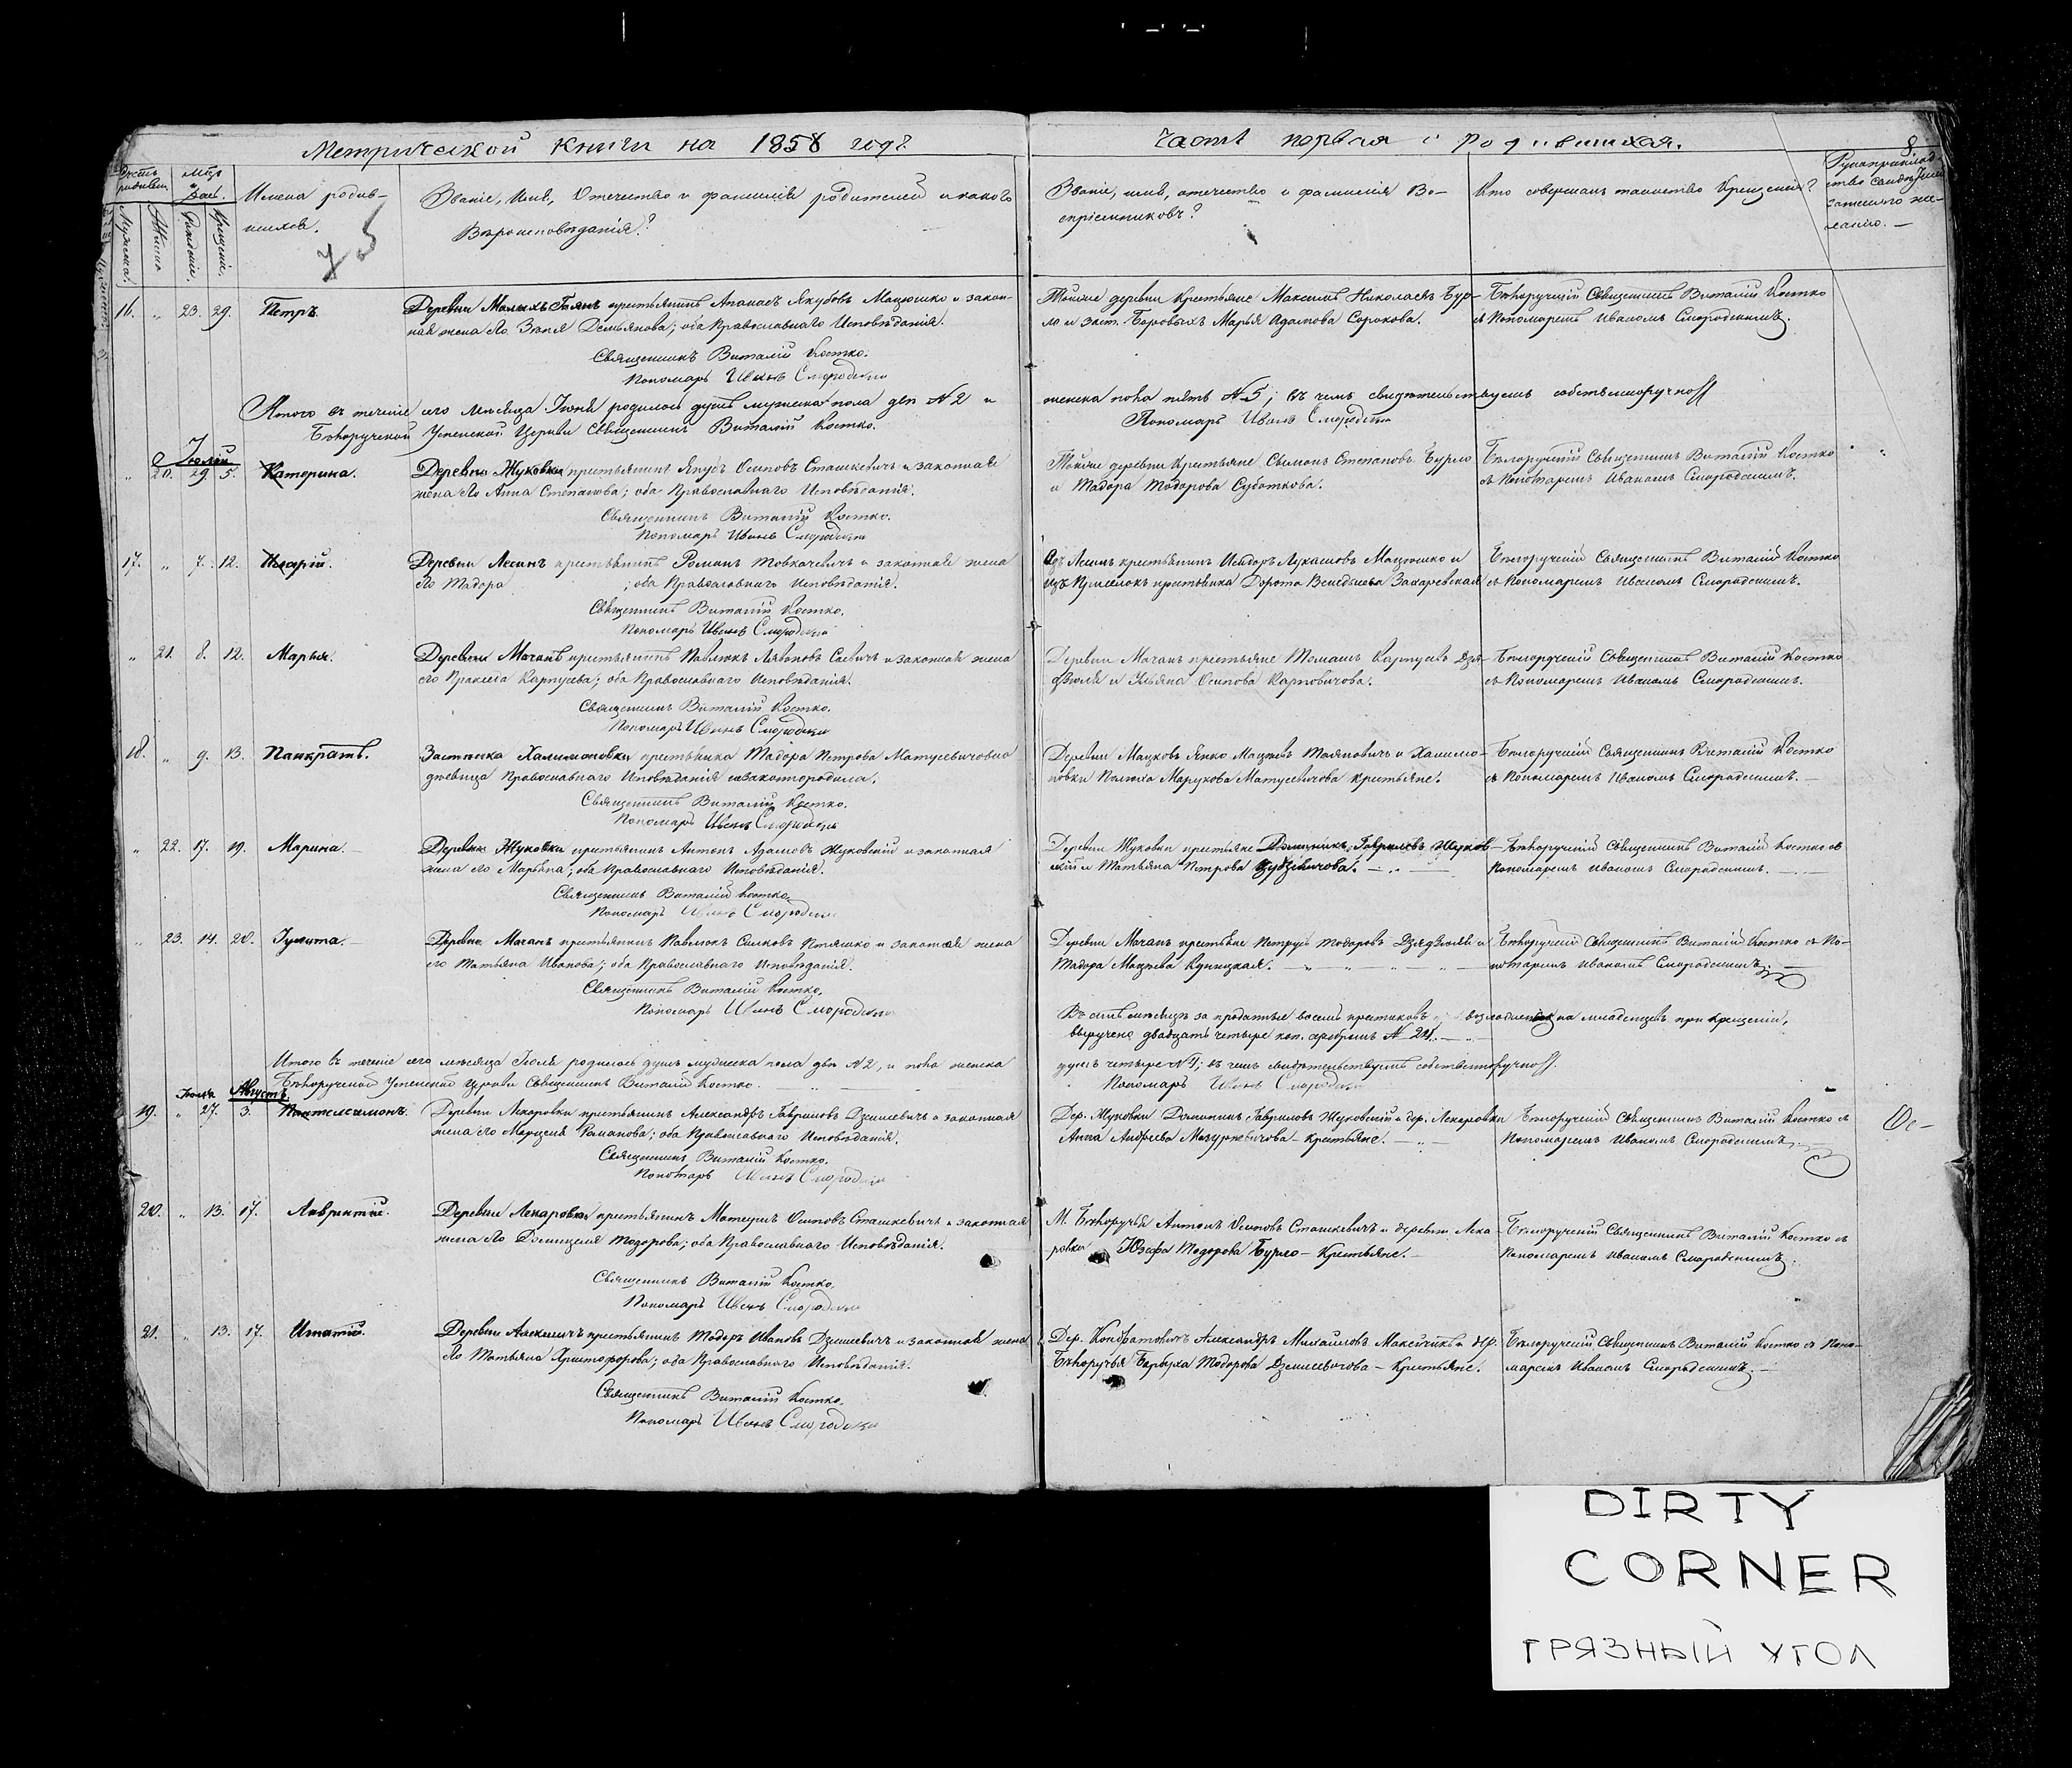 Метрической книги на 1858 годъ
Часть первая о родившихся.
8
Мѣсц. и день.
Мужеска. Женска. Рожденія. Крещенія.
Имена родив-
шихся.
Званіе, Имя, Отечество и фамилія родителей и какого
Вѣроисповѣданія?
Званіе, имя, отечество и фамилія Во-
спріемниковъ?
Кто совершалъ таинство Крещенія?
Рукоприклад-
ство свидѣтелей
записи по же-
ланію. —
16. " 23. 29. Петръ.
Деревни Малыхъ Гаянъ крестьянинъ Апанасъ Якубовъ Мацюшко и закон-
ная жена его Зыновія Демьянова; оба Православнаго Исповѣданія.
Священникъ Виталій Костко.
Пономарь Иванъ Смородскій
Тойже деревни Крестьяне Максимъ Николаевъ Бур-
ло и заст. Боровыхъ Марья Адамова Сорокова.
Бѣлоручскій Священникъ Виталій Костко
съ Пономаремъ Иваномъ Смородскимъ.
Итого въ теченіе сего мѣсяца Іюня родилось душъ мужеска пола два №2 и
женска пола пять №5; въ чемъ свидѣтельствуемъ собственноручно
Бѣлоручской Успенской Церкви Священникъ Виталій Костко.
Пономарь Иванъ Смородскій
Іюлій
" 20. 29. 5. Каторина.
Деревни Жуковки крестьянинъ Якубъ Осиповъ Сташкевичъ и законная
жена его Анна Степанова; оба Православнаго Исповѣданія.
Священникъ Виталій Костко.
Пономарь Иванъ Смородскій
Тойже деревни Крестьяне Сымонъ Степановъ Бурло
и Тадора Тодорова Суботкова.
Бѣлоручскій Священникъ Виталій Костко
съ Пономаремъ Иваномъ Смородскимъ.
17. " 7. 12. Иларій.
Деревни Лесинъ крестьянинъ Романъ Товкачевичъ и законная жена
его Тадора ; оба Православнаго Исповѣданія.
Священникъ Виталій Костко.
Пономарь Иванъ Смородскій
Изъ Лесинъ крестьянинъ Исидоръ Лукашовъ Мацюшко и
изъ Крыселокъ крестьянка Дорота Венедыева Захаревская
Бѣлоручскій Священникъ Виталій Костко
съ Пономаремъ Иваномъ Смородскимъ.
" 21. 8. 12. Марья.
Деревни Мачанъ крестьянинъ Павлюкъ Ляѳоновъ Саевичъ и законная жена
его Пракседа Карпусева; оба Православнаго Исповѣданія.
Священникъ Виталій Костко.
Пономарь Иванъ Смородскій
Деревни Мачанъ крестьяне Томашъ Карпусевъ Дзя-
дзюля и Ульяна Осипова Карповичова.
Бѣлоручскій Священникъ Виталій Костко
съ Пономаремъ Иваномъ Смородскимъ.
18. " 9. 13. Панкратъ.
Застенка Халимоновки крестьянка Тадора Петрова Матусевичовна
дѣвица Православнаго Исповѣданія незаконородила.
Священникъ Виталій Костко.
Пономарь Иванъ Смородскій
Деревни Мацковъ Янко Мацѣевъ Таляновичъ и Халимо-
новки Полюха Марукова Матусевичова крестьяне.
Бѣлоручскій Священникъ Виталій Костко
съ Пономаремъ Иваномъ Смородскимъ. —
" 22. 17. 19. Марина. —
Деревни Жуковки крестьянинъ Антонъ Адамовъ Жуковскій и законная
жена его Марьяна; оба Православнаго Исповѣданія.
Священникъ Виталій Костко.
Пономарь Иванъ Смородскій
Деревни Жуковки крестьяне Доминикъ Гавриловъ Жуков-
скій и Татьяна Петрова
Бѣлоручскій Священникъ Виталій Костко съ
Пономаремъ Иваномъ Смородскимъ. —
" 23. 14. 20. Іулита. —
Деревни Мачанъ крестьянинъ Павлюкъ Силковъ Пляшко и законная жена
его Татьяна Иванова; оба Православнаго Исповѣданія.
Священникъ Виталій Костко.
Пономарь Иванъ Смородскій
Деревни Мачанъ крестьяне Петрусь Тодоровъ Дзядзюля и
Тадора Мацѣева Куницкая. —
Бѣлоручскій Священникъ Виталій Костко съ По-
номаремъ Иваномъ Смородскимъ. —
Въ семъ мѣсяцѣ за проданные восемь крестиковъ возложенныхъ на младенцевъ при Крещеніи,
выручено двадцать четыре коп. сребромъ № 24. —
Итого въ теченіе сего мѣсяца Іюля родилось душъ мужеска пола два №2, и пола женска
душъ четыре №4; въ чемъ свидѣтельствуемъ собственноручно.
Бѣлоручской Успенской Церкви Священникъ Виталій Костко.
Пономарь Иванъ Смородскій
Іюля Августъ.
19. " 27. 3. Пантелеимонъ.
Деревни Лекаровки крестьянинъ Александръ Гавриловъ Дземешевичъ и законная
жена его Марцеля Романова; оба Православнаго Исповѣданія.
Священникъ Виталій Костко.
Пономарь Иванъ Смородскій
Дер. Жуковки Доминикъ Гавриловъ Жуковскій и дер. Лекаровки
Анна Андреева Мазуркевичова — Крестьяне. —
Бѣлоручскій Священникъ Виталій Костко съ
Пономаремъ Иваномъ Смородскимъ.
20. " 13. 17. Лаврентій.
Деревни Лекаровки крестьянинъ Матеушъ Осиповъ Сташкевичъ и законная
жена его Домицеля Тодорова; оба Православнаго Исповѣданія.
Священникъ Виталій Костко.
Пономарь Иванъ Смородскій
М. Бѣлоручья Антонъ Осиповъ Сташкевичъ и деревни Лека-
ровки Юзефа Тодорова Бурло — Крестьяне. —
Бѣлоручскій Священникъ Виталій Костко съ
Пономаремъ Иваномъ Смородскимъ.
21. " 13. 17. Игнатій.
Деревни Алекшичъ крестьянинъ Тодоръ Ивановъ Дземешевичъ и законная жена
его Татьяна Христофорова; оба Православнаго Исповѣданія.
Священникъ Виталій Костко.
Пономарь Иванъ Смородскій
Дер. Кондратовичъ Александръ Михайловъ Максимчикъ и дер.
Бѣлоручья Барбуха Тодорова Дземешевичова — Крестьяне.
Бѣлоручскій Священникъ Виталій Костко съ Поно-
маремъ Иваномъ Смородскимъ. —
DIRTY
CORNER
ГРЯЗНЫЙ УГОЛ